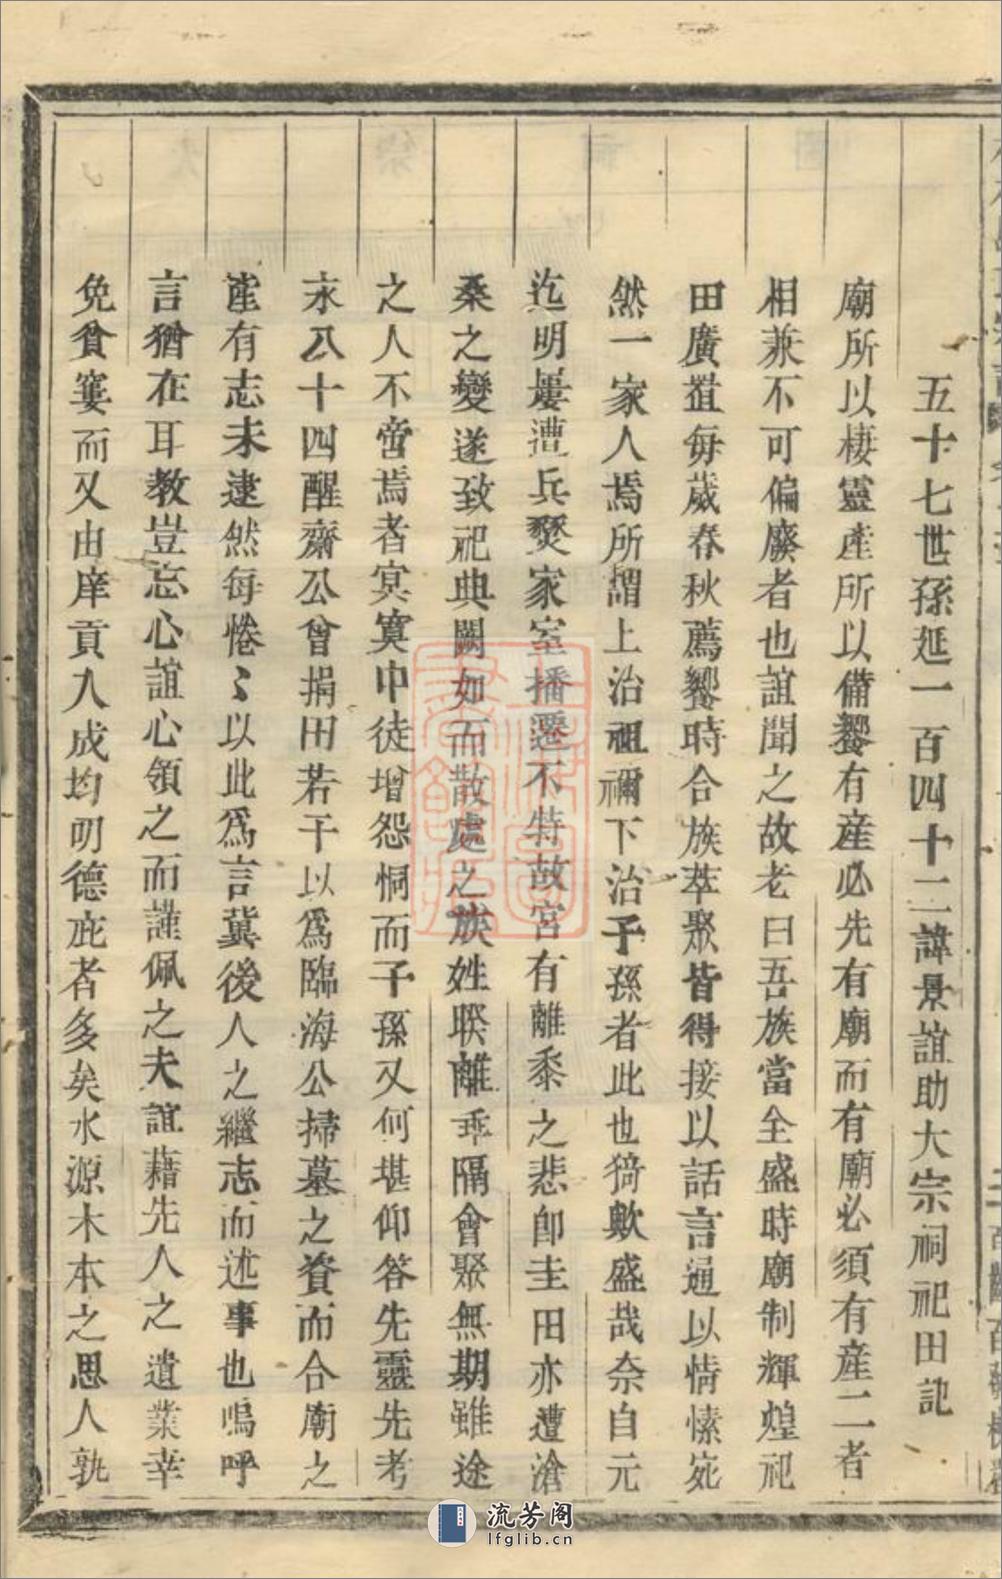 五十七世孫延一百四十二諱景誼助大宗祠祀田記
廟所以棲靈產所以備饗有產必先有廟而有廟必須有產二者
相兼不可偏廢者也誼聞之故老曰吾族當全盛時廟制輝煌祀
田廣置每歲春秋薦饗時合族萃聚皆得接以話言通以情愫宛
然一家人焉所謂上治祖禰下治子孫者此也猗歟盛哉奈自元
迄明屢遭兵燹家室播遷不特故宮有離黍之悲卽圭田亦遭滄
桑之變遂致祀典闕如而散處之族姓睽離乖隔會聚無期雖途
之人不啻焉者冥冥中徒增怨恫而子孫又何堪仰答先靈先考
永八十四醒齋公曾捐田若干以爲臨海公掃墓之資而合廟之
產有志未逮然每惓〻以此爲言冀後人之繼志而述事也嗚呼
言猶在耳敎豈忘心誼心領之而謹佩之夫誼藉先人之遺業幸
免貧窶而又由庠貢入成均明德庇者多矣水源木本之思人孰
流芳阁
lfglib.cn